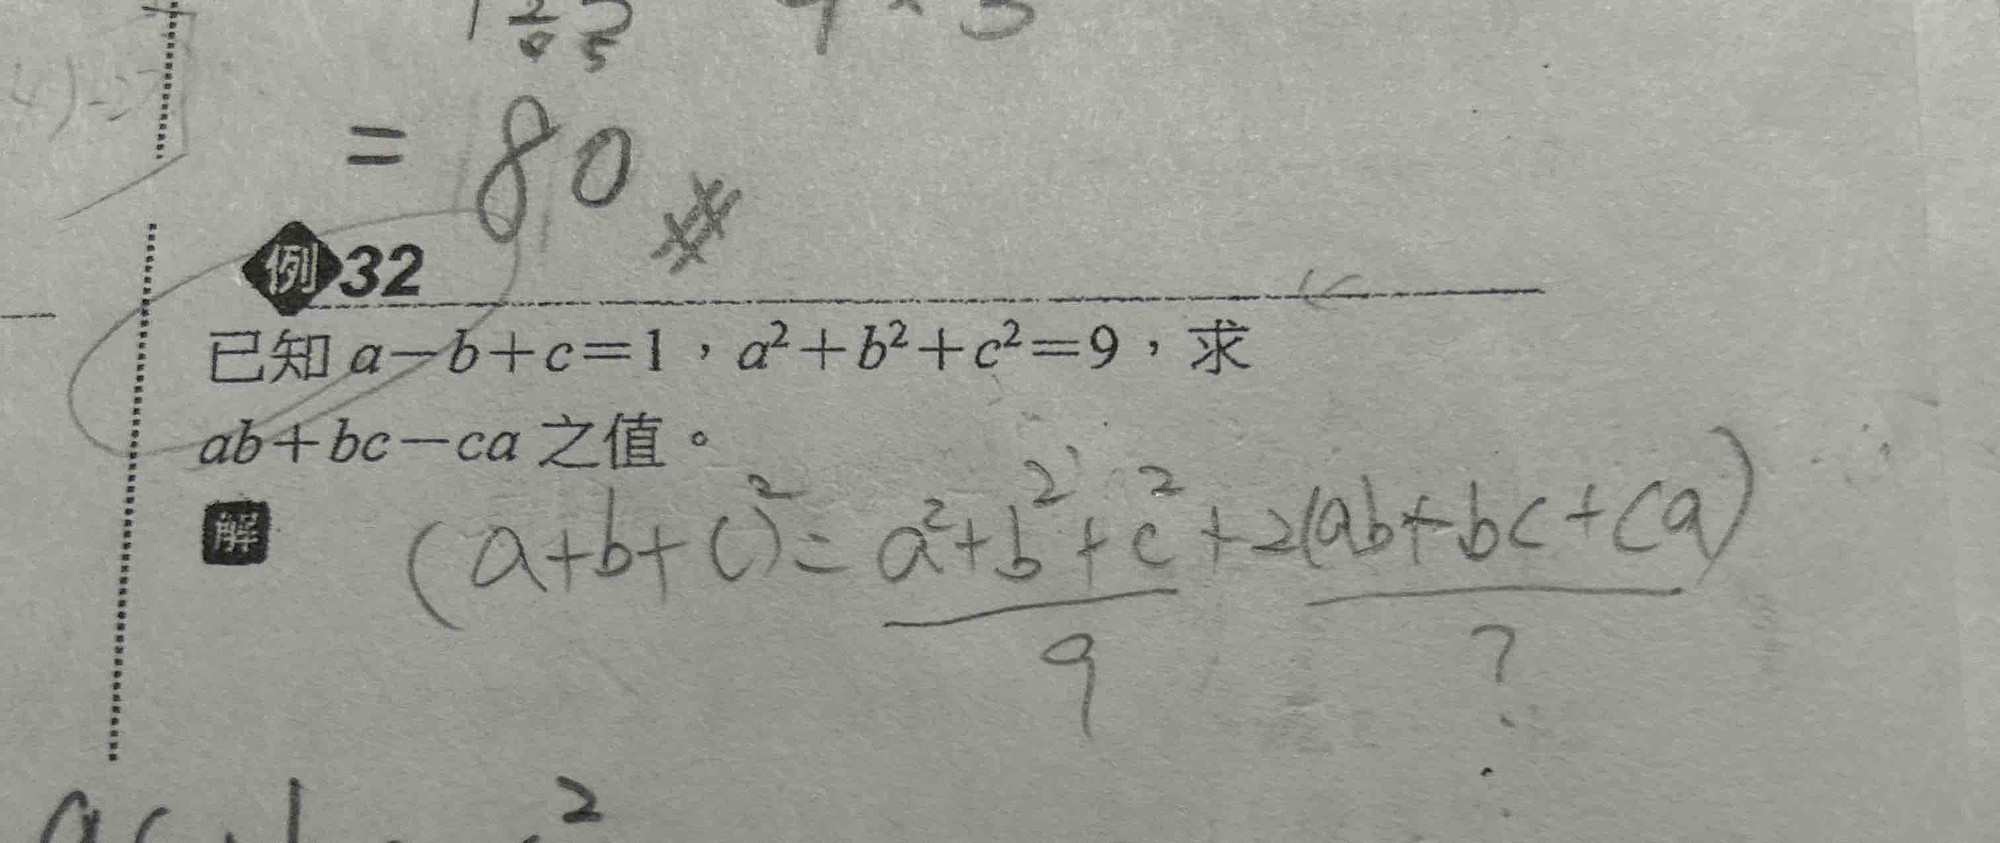 = 80 #
例32
已知 a－b＋c＝1，a²＋b²＋c²＝9，求
ab＋bc－ca 之值。
解 (a+b+c)² = a²+b²+c²+2(ab+bc+ca)
9 ?